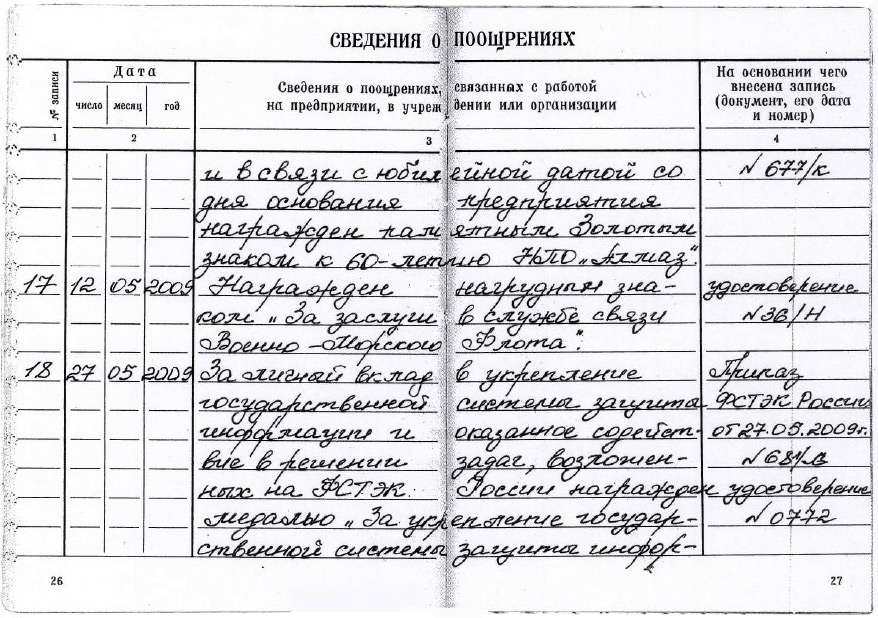 СВЕДЕНИЯ О ПООЩРЕНИЯХ
№ записи
Дата
число месяц год
Сведения о поощрениях, связанных с работой
на предприятии, в учреждении или организации
На основании чего
внесена запись
(документ, его дата
и номер)
1 2 3 4
и в связи с юбилейной датой со № 677/к
дня основания предприятия
награжден памятным Золотым
знаком к 60-летию НПО „Алмаз".
17 12 05 2009 Награжден нагрудным зна- удостоверение
ком „За заслуги в службе связи №36/Н
Военно-Морского Флота".
18 27 05 2009 За личный вклад в укрепление Приказ
государственной системы защиты ФСТЭК России
информации и оказанное содейст- от 27.05.2009г.
вие в решении задач, возложен-
ных на ФСТЭК России награжден удостоверение
медалью „За укрепление государ- № 0772
ственной системы защиты инфор-
26 27